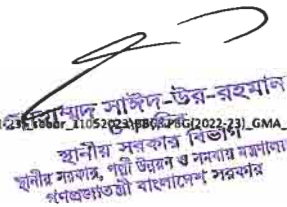 মোহাম্মদ সাঈদ-উর-রহমান
11052023\PBG(2022-23)_GMA_
স্থানীয় সরকার বিভাগ
স্থানীয় সরকার, পল্লী উন্নয়ন ও সমবায় মন্ত্রণালয়
গণপ্রজাতন্ত্রী বাংলাদেশ সরকার